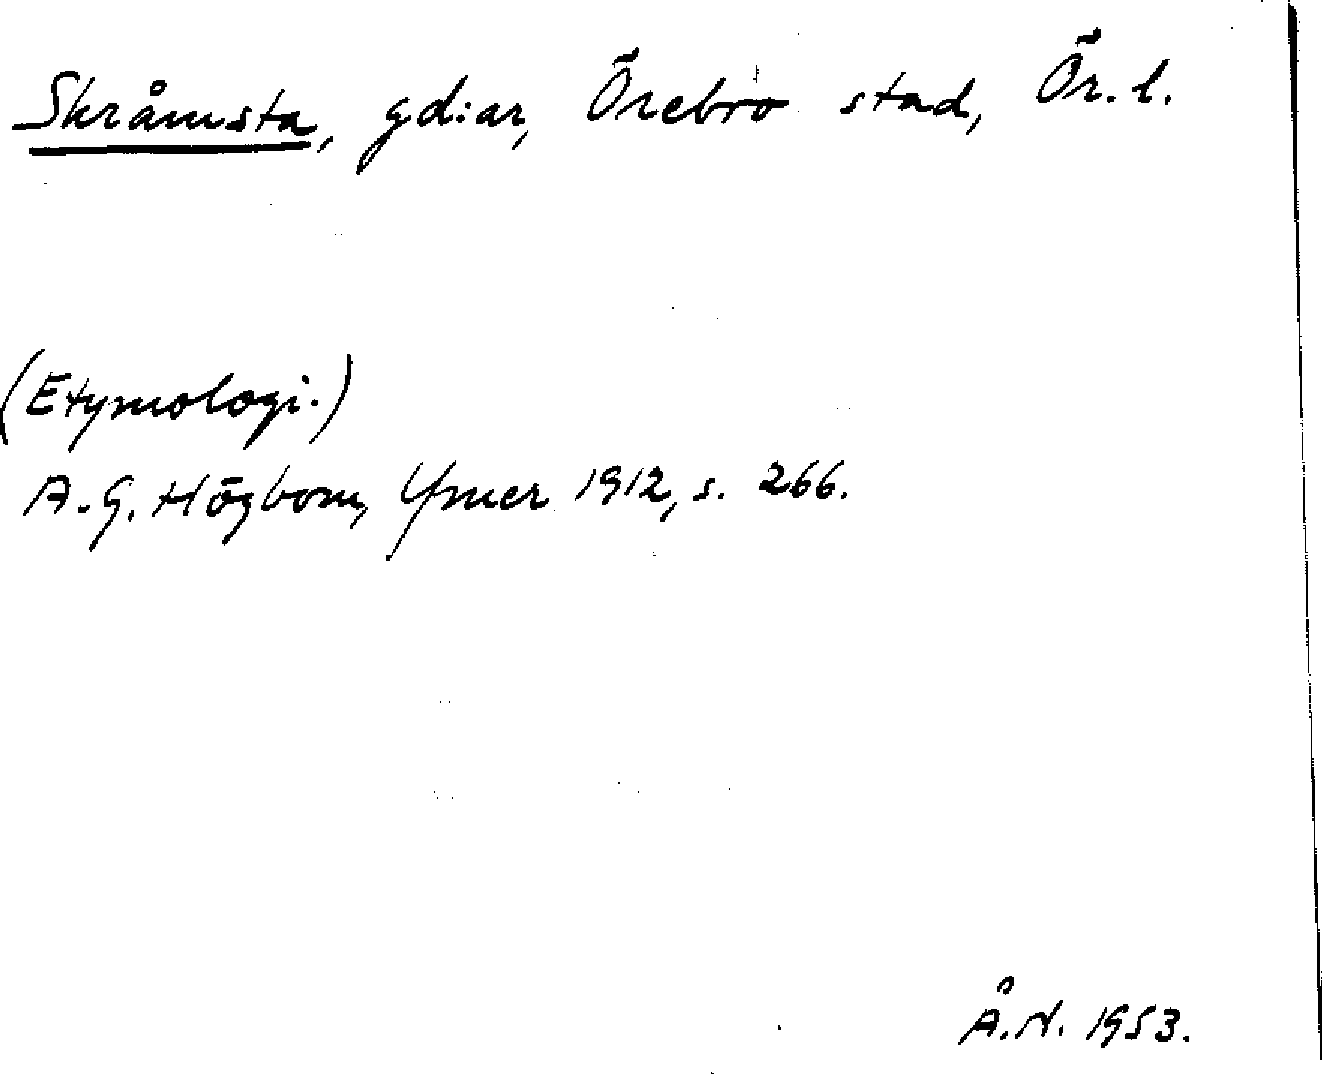 Skråmsta, gd:ar, Örebro stad, Ör. l.
(Etymologi.)
A. G. Högbom, Ymer 1912, s. 266.
Å. N. 1953.